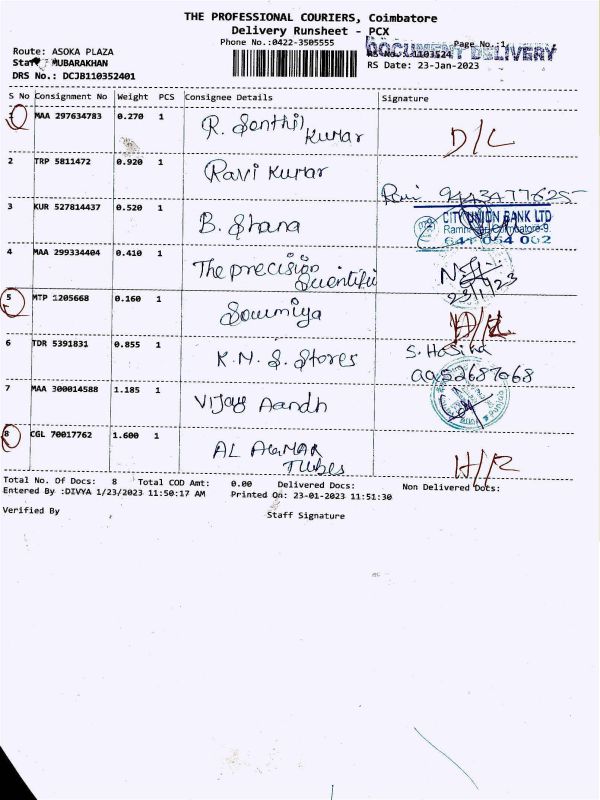 THE PROFESSIONAL COURIERS, Coimbatore
Delivery Runsheet - PCX
Phone No.:0422-3505555
Page No.:1
DOCUMENT DELIVERY
Route: ASOKA PLAZA
RS No.:1103524
Staff MUBARAKHAN
RS Date: 23-Jan-2023
DRS No.: DCJB110352401
S No Consignment No Weight PCS Consignee Details Signature
1 MAA 297634783 0.270 1 R. Senthil Kumar D/L
2 TRP 5811472 0.920 1 Ravi Kumar
Ravi
3 KUR 527814437 0.520 1 B. Shana
CITY UNION BANK LTD
Coimbatore-9.
641 054 002
4 MAA 299334404 0.410 1 The precision Scientific
23/1/23
5 MTP 1205668 0.160 1 Soumiya
6 TDR 5391831 0.855 1 K.N.S. Stores S. Hasina
9952687068
7 MAA 300014588 1.185 1 Vijay Aandh
8 CGL 70017762 1.600 1 AL Tubes H/R
Total No. Of Docs: 8 Total COD Amt: 0.00 Delivered Docs: Non Delivered Docs:
Entered By :DIVYA 1/23/2023 11:50:17 AM Printed On: 23-01-2023 11:51:30
Verified By Staff Signature